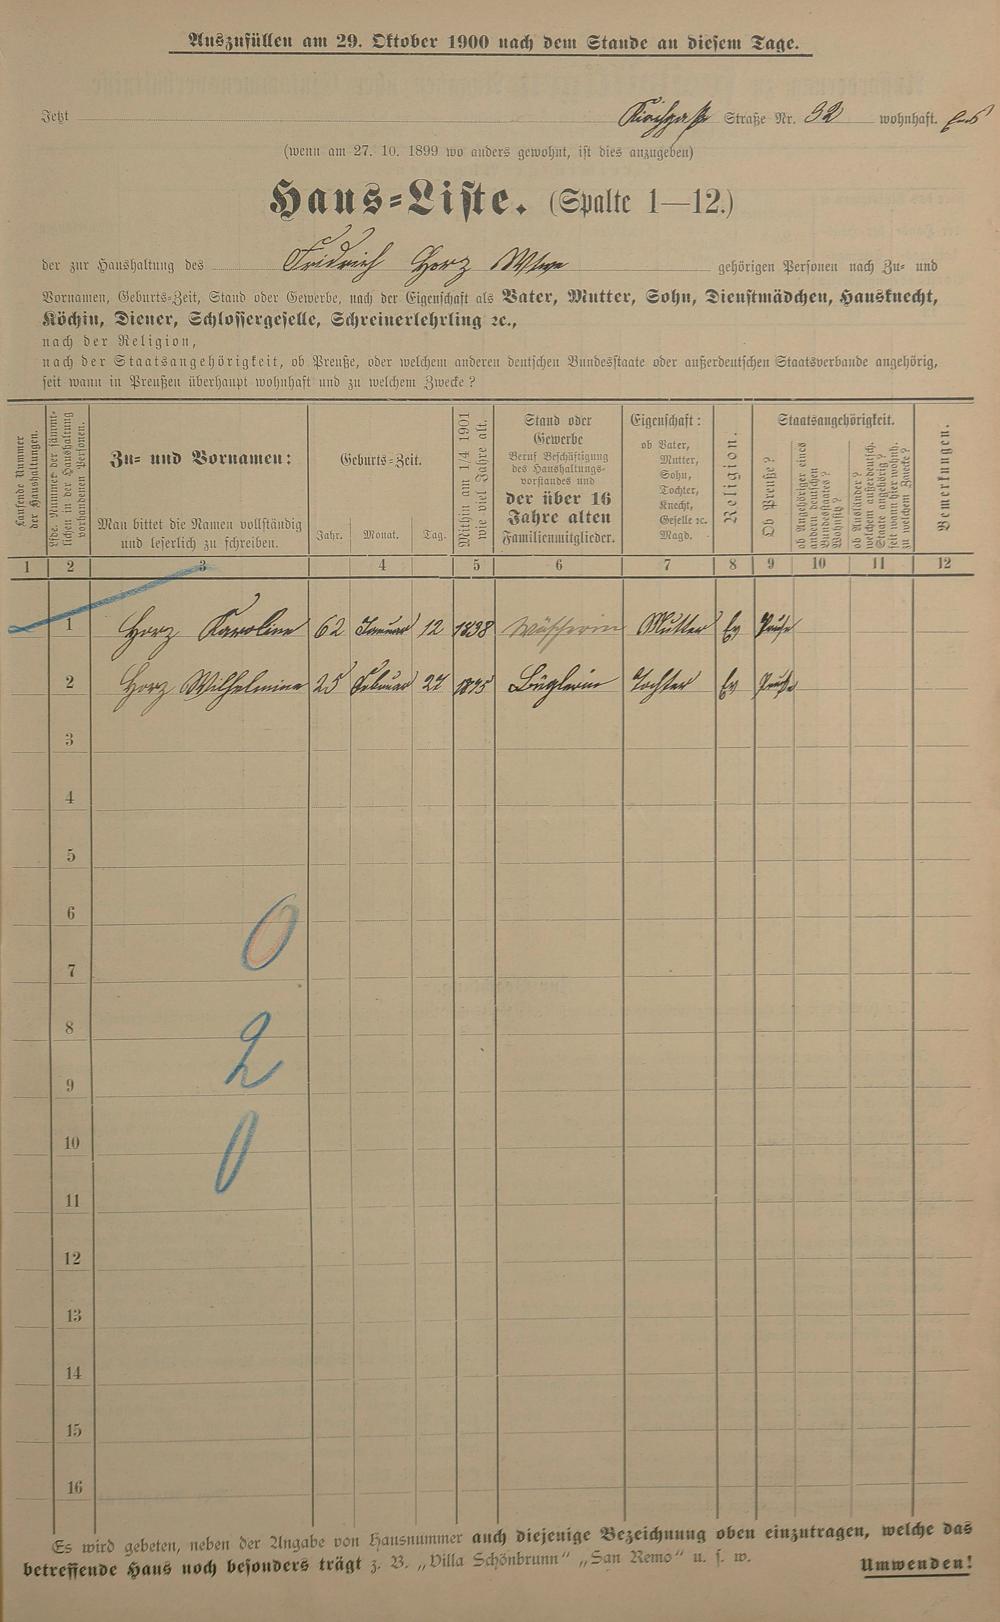 Auszufüllen am 29. Oktober 1900 nach dem Stande an diesem Tage.
Jetzt Kirchgasse Straße Nr. 32 wohnhaft.
(wenn am 27. 10. 1899 wo anders gewohnt, ist dies anzugeben)
Haus-Liste. (Spalte 1—12.)
der zur Haushaltung des Fridrich Horz Wtwe gehörigen Personen nach Zu- und
Vornamen, Geburts-Zeit, Stand oder Gewerbe, nach der Eigenschaft als Vater, Mutter, Sohn, Dienstmädchen, Hausknecht,
Köchin, Diener, Schlossergeselle, Schreinerlehrling ꝛc.,
nach der Religion,
nach der Staatsangehörigkeit, ob Preuße, oder welchem anderen deutschen Bundesstaate oder außerdeutschen Staatsverbande angehörig,
seit wann in Preußen überhaupt wohnhaft und zu welchem Zwecke?
Laufende Nummer
der Haushaltungen.
Lfde. Nummer der sämmt-
lichen in der Haushaltung
vorhandenen Personen.
Zu- und Vornamen:
Man bittet die Namen vollständig
und leserlich zu schreiben.
Geburts-Zeit.
Jahr. Monat. Tag.
Mithin am 1/4 1901
wie viel Jahre alt.
Stand oder
Gewerbe
Beruf Beschäftigung
des Haushaltungs-
vorstandes und
der über 16
Jahre alten
Familienmitglieder.
Eigenschaft:
ob Vater,
Mutter,
Sohn,
Tochter,
Knecht,
Geselle ꝛc.
Magd.
Religion.
Staatsangehörigkeit.
Ob Preuße?
ob Angehöriger eines
andern deutschen
Bundesstaates?
Wohnsitz?
ob Ausländer?
welchem außerdeutsch.
Staate angehörig?
seit wann hier wohnh.
zu welchem Zwecke?
Bemerkungen.
1 2 3 4 5 6 7 8 9 10 11 12
1 Horz Karoline 62 Januar 12 1838 Wäscherin Mutter Ev Preuße
2 Horz Wilhelmine 25 Februar 27 1875 Büglerin Tochter Ev Preuße
3
4
5
6
0
7
8
2
9
10
0
11
12
13
14
15
16
Es wird gebeten, neben der Angabe von Hausnummer auch diejenige Bezeichnung oben einzutragen, welche das
betreffende Haus noch besonders trägt z. B. „Villa Schönbrunn" „San Remo" u. s. w.
Umwenden!